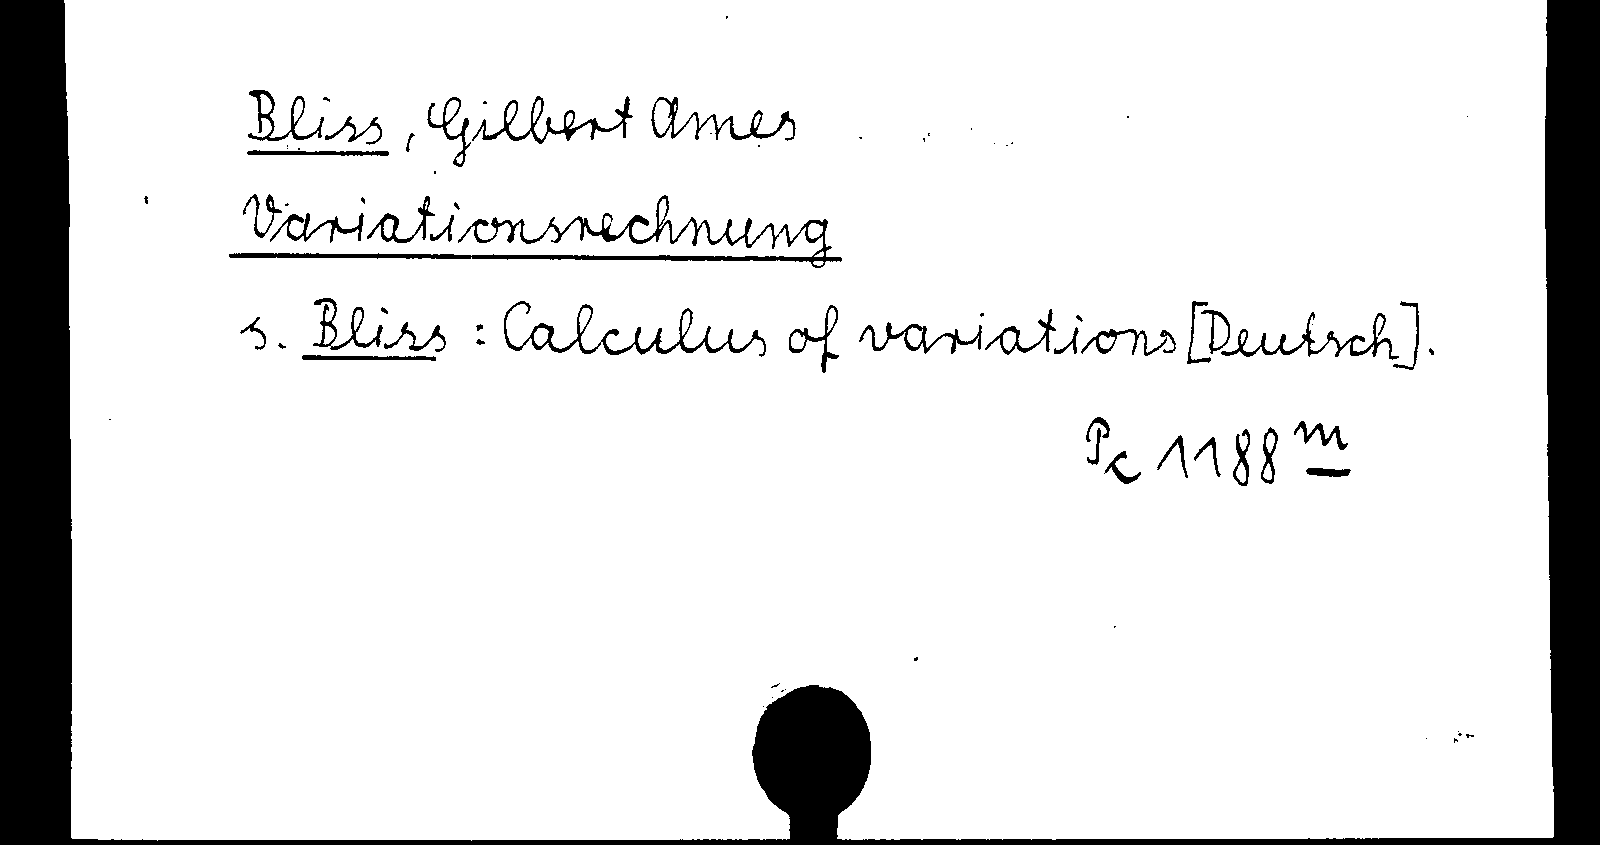 Bliss, Gilbert Ames
Variationsrechnung
s. Bliss: Calculus of variations [Deutsch].
Pc 1188 m